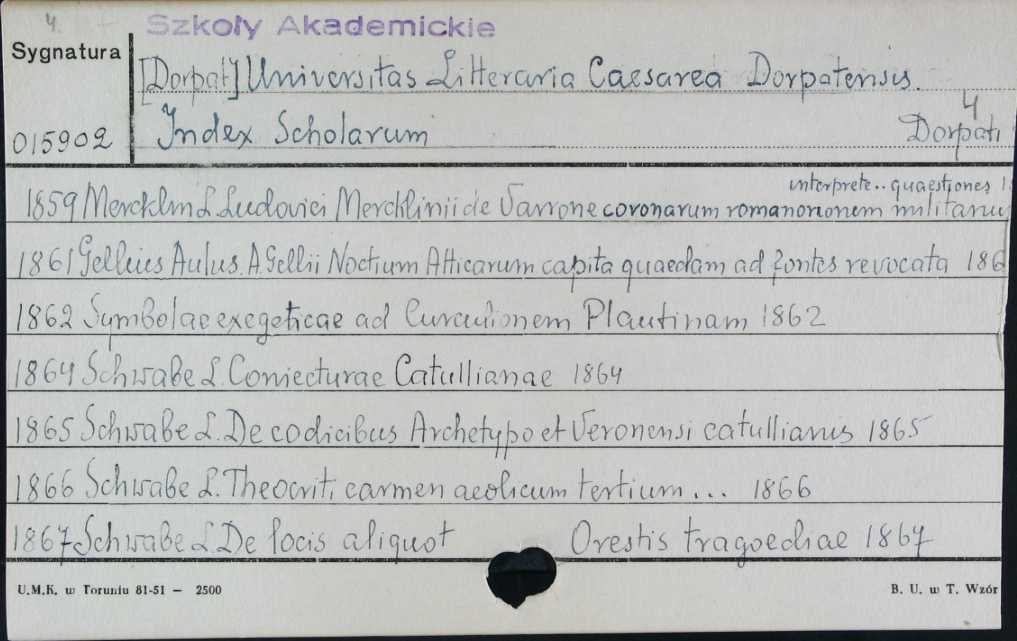 4.
Szkoły Akademickie
Sygnatura
[Dorpat] Universitas Litteraria Caesarea Dorpatensis.
4
015902 Index Scholarum Dorpati
interprete.. quaestiones
1859 Mercklin L. Ludovici Mercklinii de Varrone coronarum romanorum militarium
1861 Gellius Aulus. A. Gellii Noctium Atticarum capita quaedam ad fontes revocata 186
1862 Symbolae exegeticae ad Curculionem Plautinam 1862
1864 Schwabe L. Coniecturae Catullianae 1864
1865 Schwabe L. De codicibus Archetypo et Veronensi catullianis 1865
1866 Schwabe L. Theocriti carmen aeolicum tertium... 1866
1867 Schwabe L. De locis aliquot Orestis tragoediae 1867
U.M.K. w Toruniu 81-51 — 2500 B. U. w T. Wzór